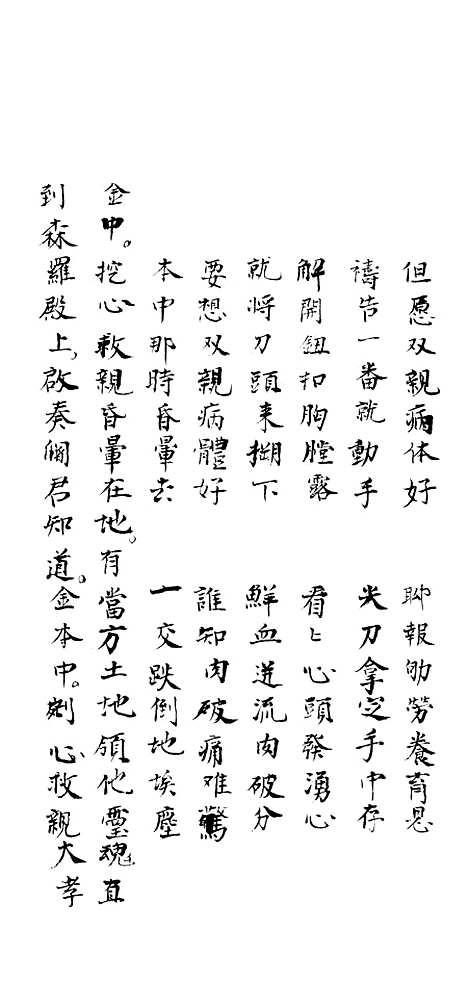 但愿双親病体好　聊報劬勞養育恩
禱告一番就動手　尖刀拿定手中存
解開鈕扣胸膛露　看〻心頭發湧心
就將刀頭来搠下　鮮血迸流肉破分
要想双親病體好　誰知肉破痛难驚
本中那時昏暈去　一交跌倒地埃塵
金中。挖心救親昏暈在地。有當方土地領他靈魂直
到森羅殿上。啟奏閻君知道。金本中。剜心救親大孝